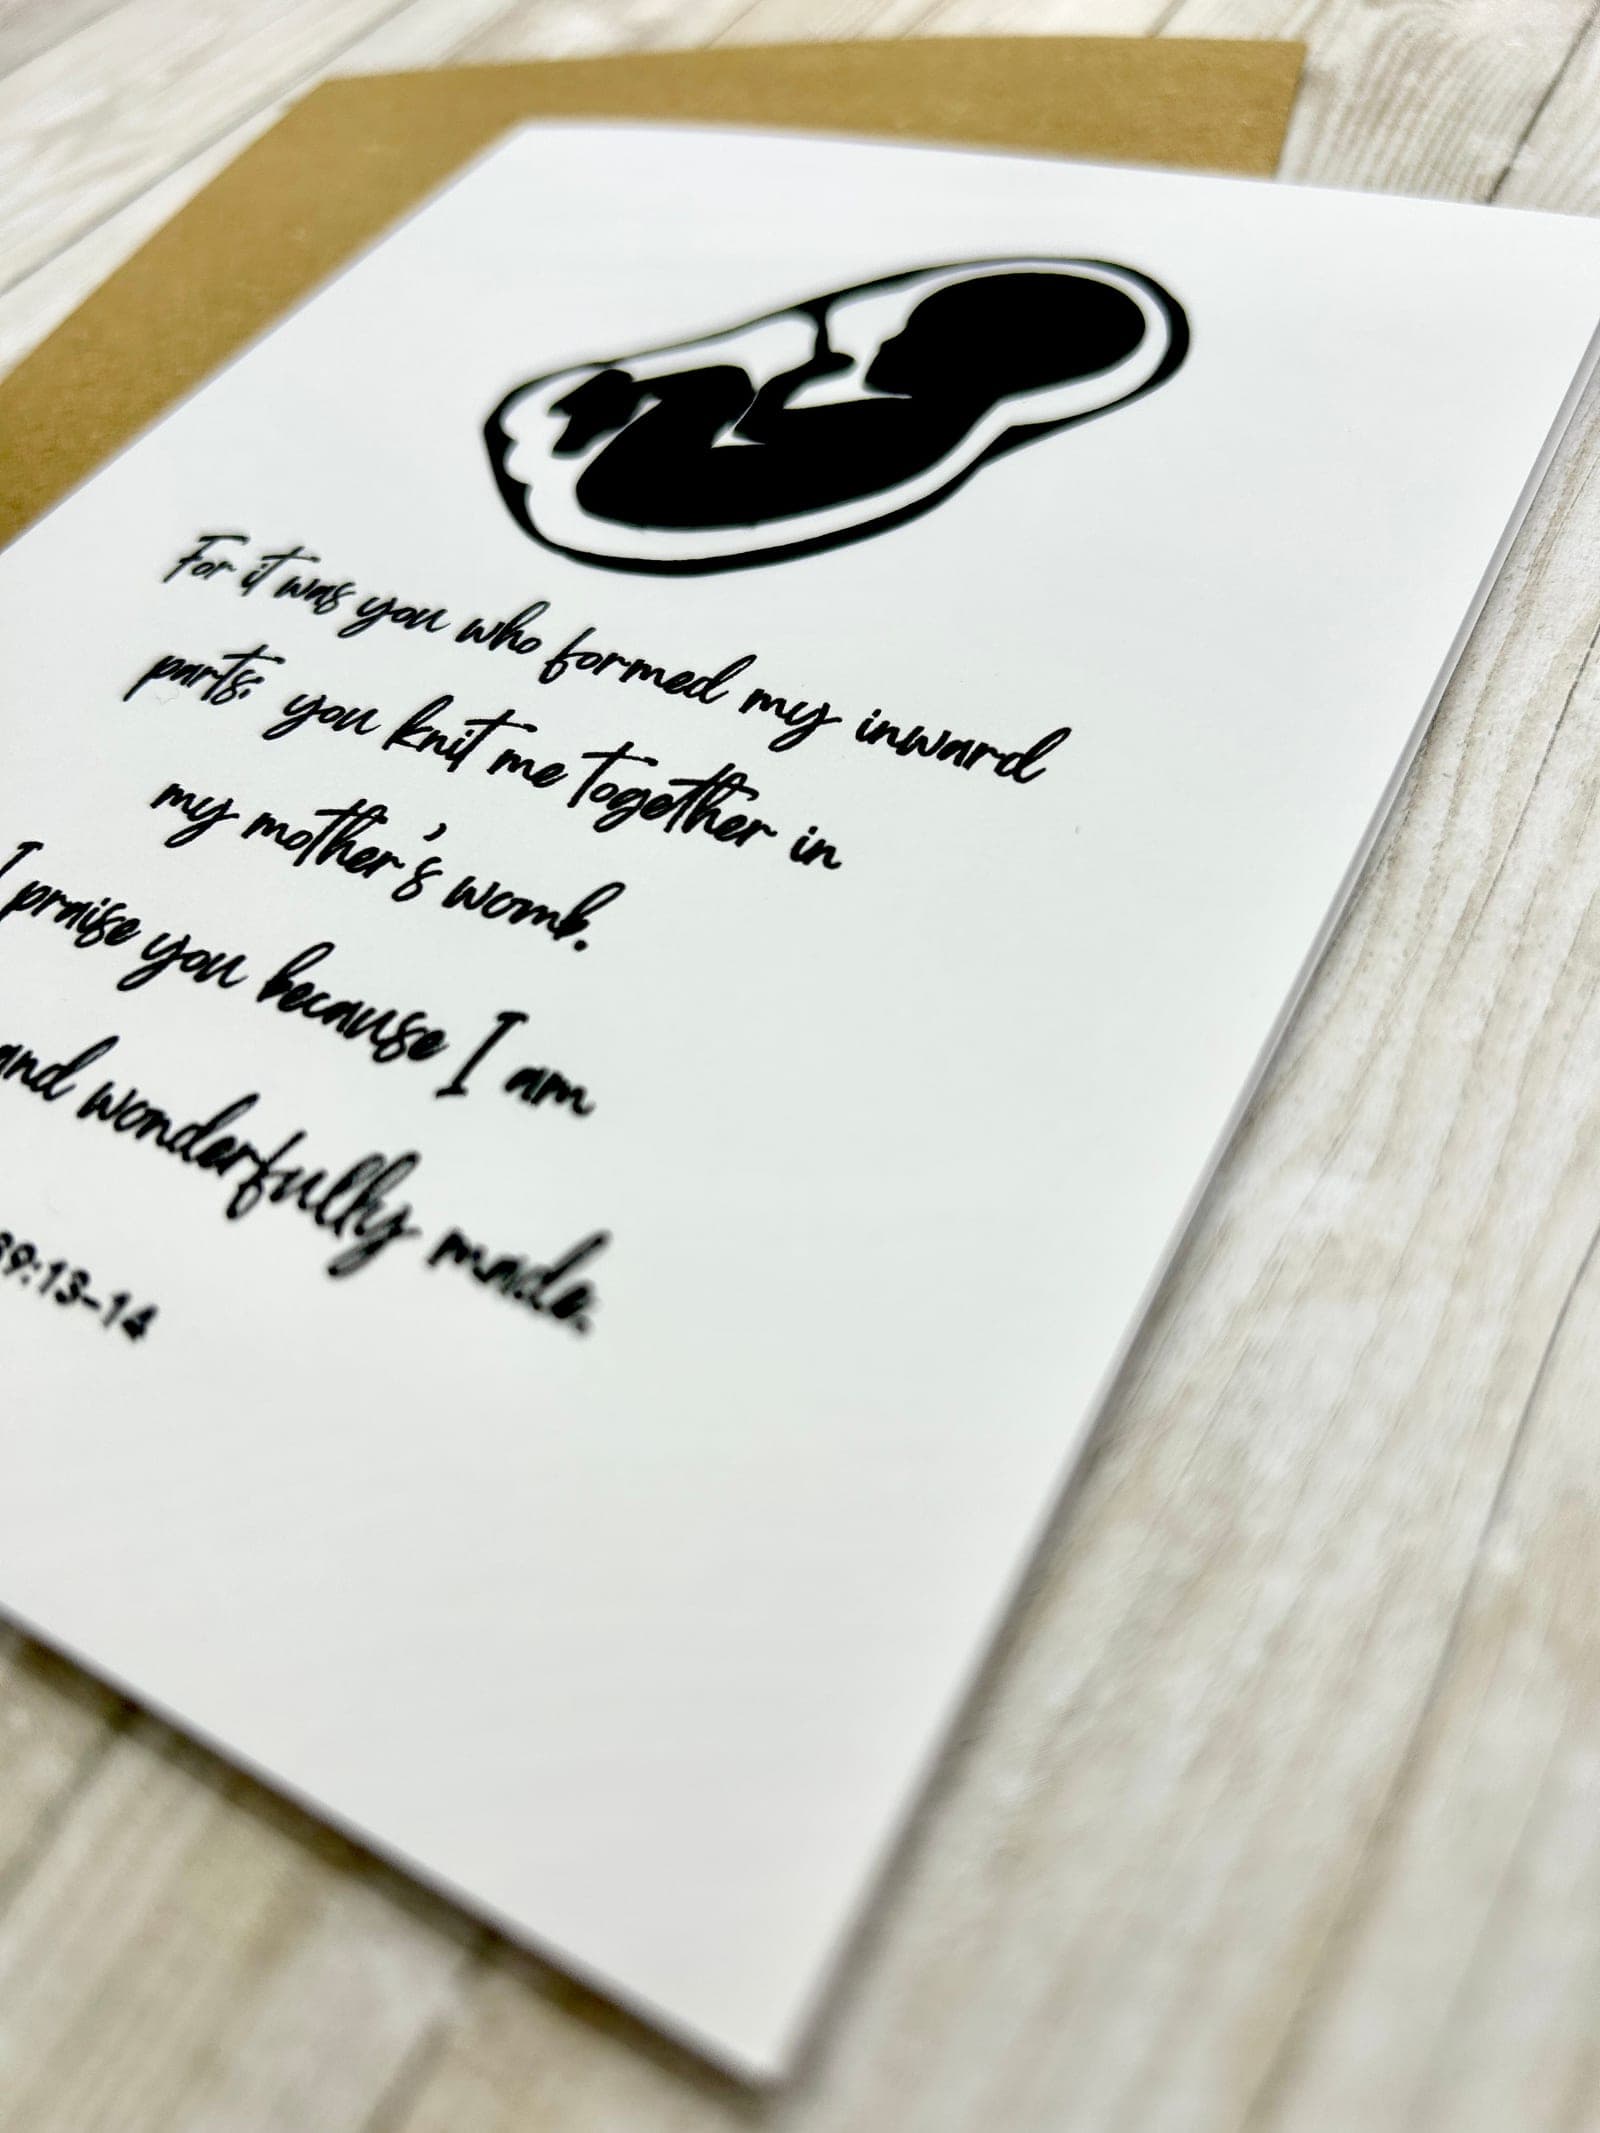 For it was you who formed my inward
parts; you knit me together in
my mother's womb.
I praise you because I am
and wonderfully made.
39:13-14